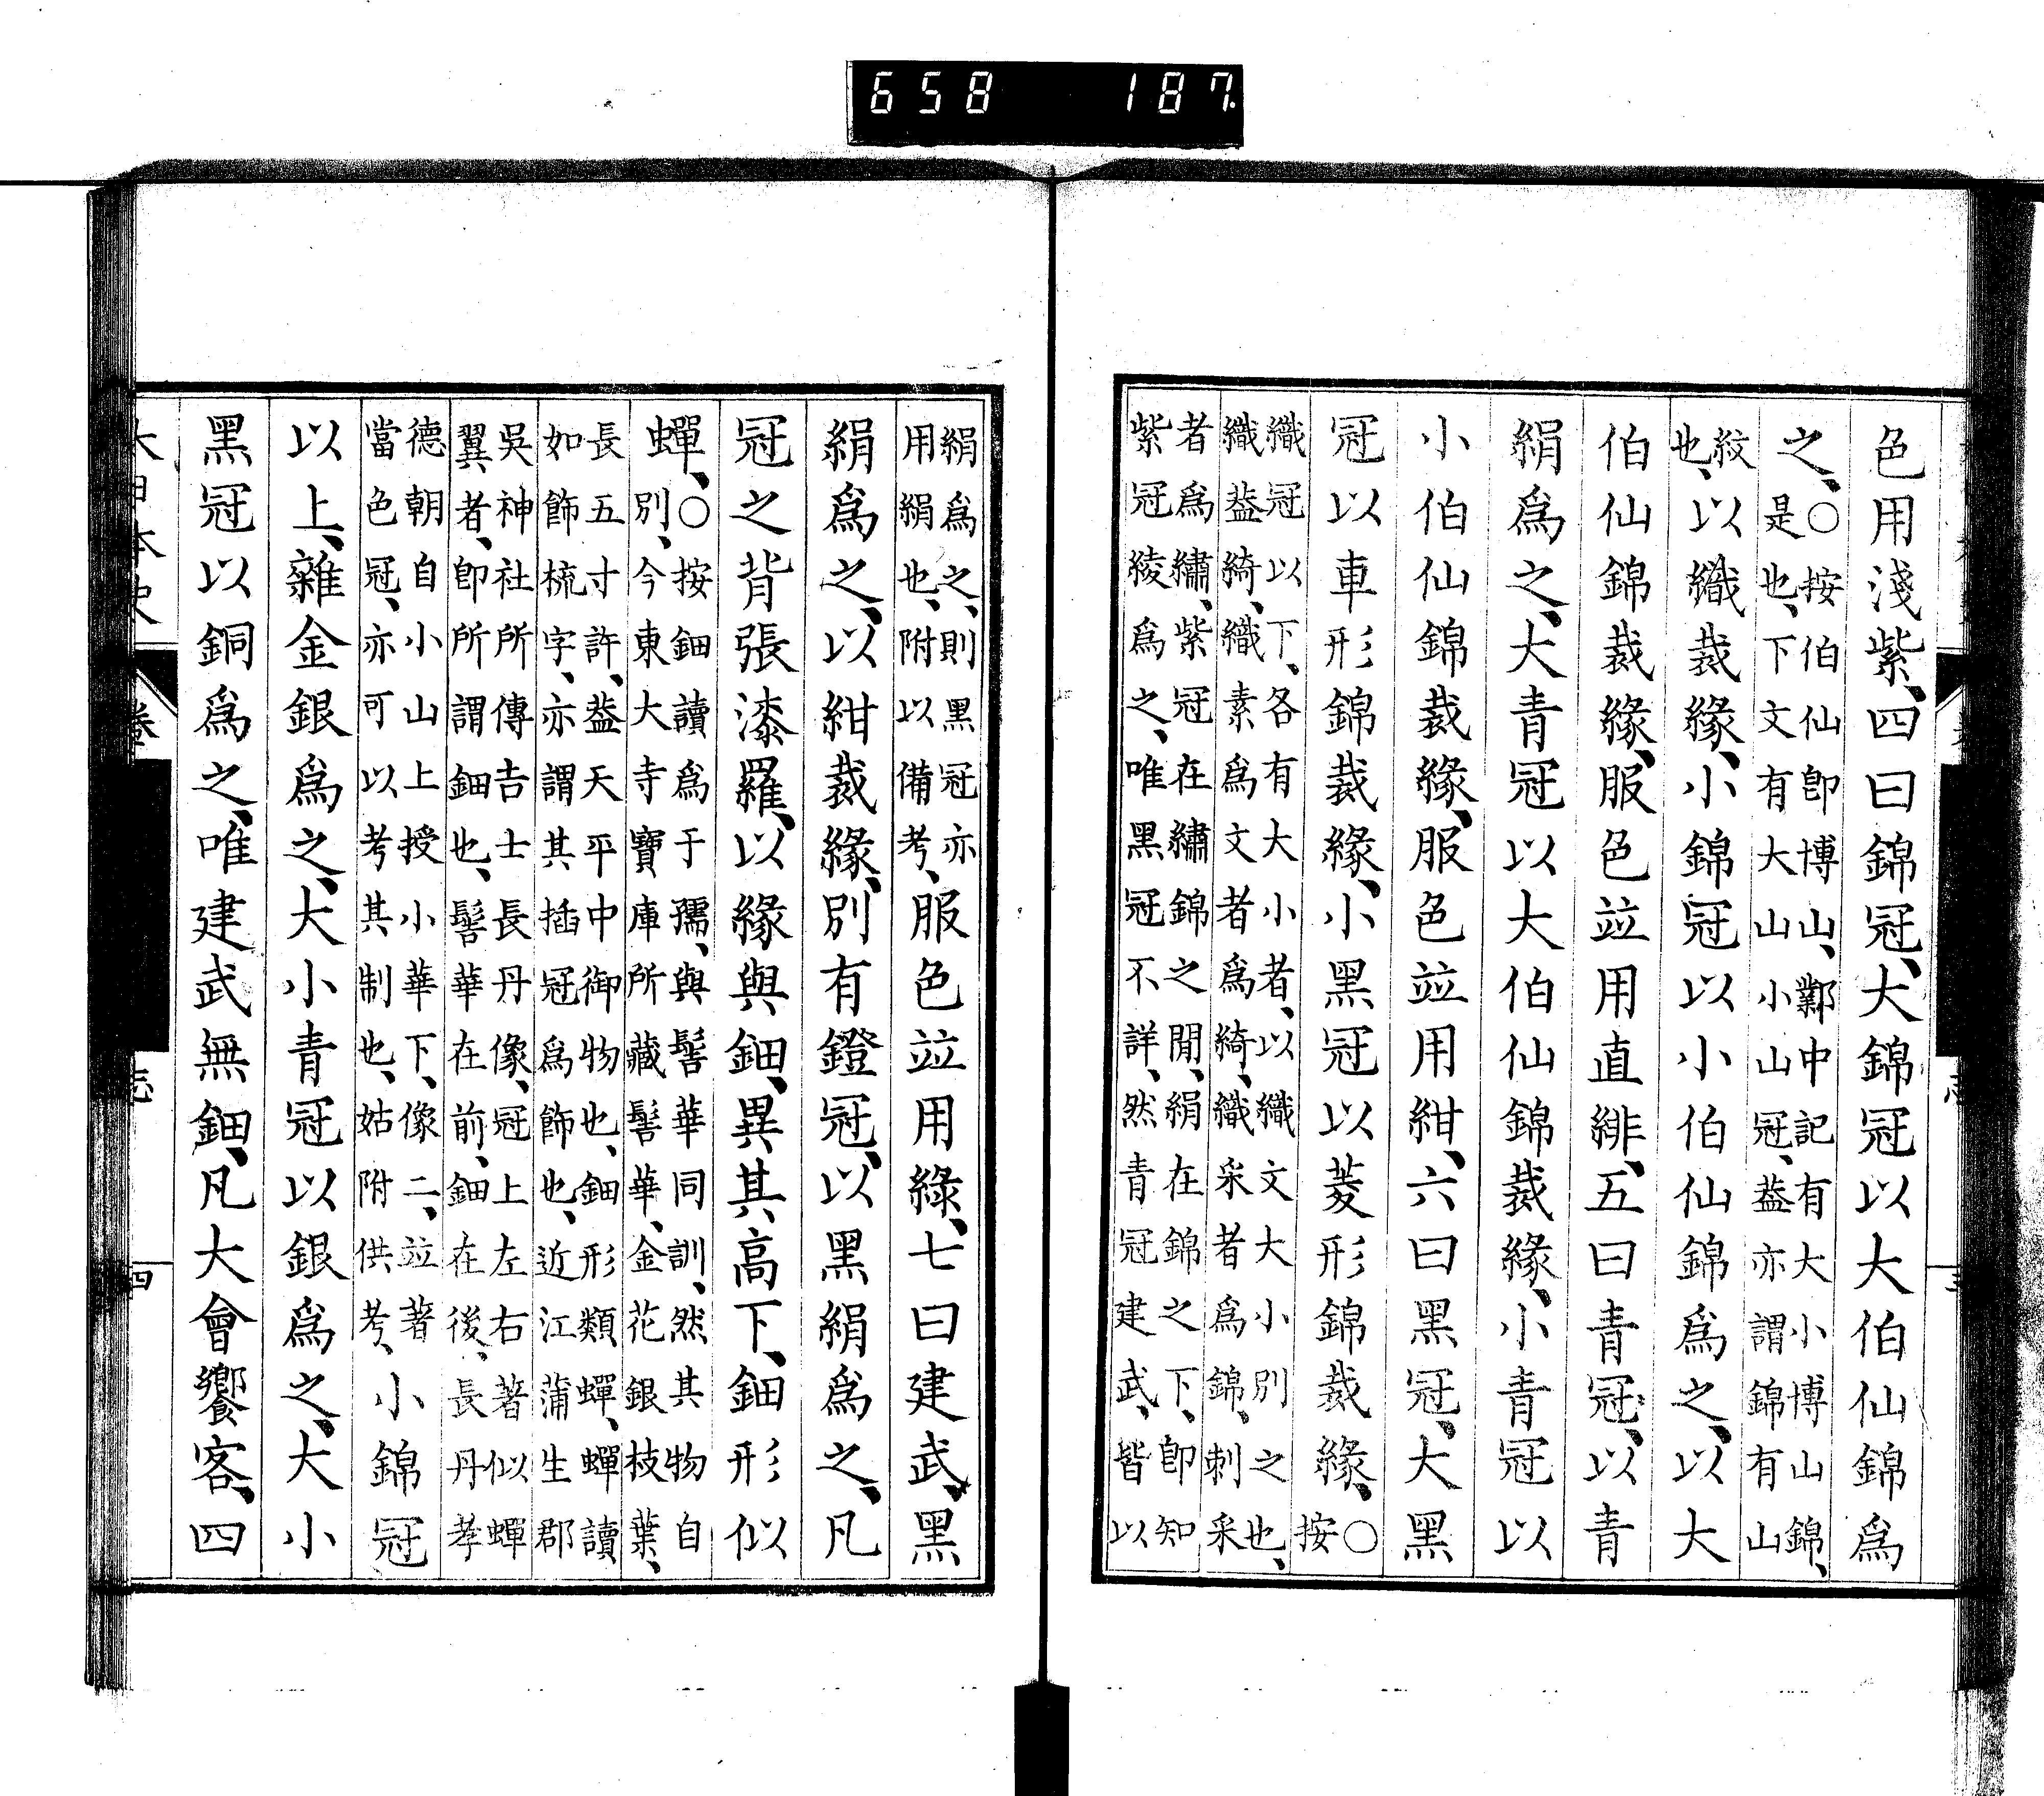 658 187
色用淺紫、四曰錦冠、大錦冠以大伯仙錦爲
之、○按伯仙卽博山、鄴中記有大小博山錦、
是也、下文有大山小山冠、葢亦謂錦有山
紋也、以織裁緣、小錦冠以小伯仙錦爲之、以大
伯仙錦裁緣、服色竝用直緋、五曰青冠、以青
絹爲之、大青冠以大伯仙錦裁緣、小青冠以
小伯仙錦裁緣、服色竝用紺、六曰黑冠、大黑
冠以車形錦裁緣、小黑冠以菱形錦裁緣、○
按
織冠以下、各有大小者、以織文大小別之也、
織葢綺、織素爲文者爲綺、織采者爲錦、刺采
者爲繡、紫冠在繡錦之閒、絹在錦之下、卽知
紫冠綾爲之、唯黑冠不詳、然青冠建武、皆以
絹爲之、則黑冠亦
用絹也、附以備考、服色竝用綠、七曰建武、黑
絹爲之、以紺裁緣、別有鐙冠、以黑絹爲之、凡
冠之背張漆羅、以緣與鈿、異其高下、鈿形似
蟬、○按鈿讀爲于孺、與髻華同訓、然其物自
別、今東大寺寶庫所藏髻華、金花銀枝葉、
長五寸許、葢天平中御物也、鈿形類蟬、蟬讀
如飾梳字、亦謂其插冠爲飾也、近江蒲生郡
吳神社所傳吉士長丹像、冠上左右著似蟬
翼者、卽所謂鈿也、髻華在前、鈿在後、長丹孝
德朝自小山上授小華下、像二、竝著
當色冠、亦可以考其制也、姑附供考、小錦冠
以上、雜金銀爲之、大小青冠以銀爲之、大小
黑冠以銅爲之、唯建武無鈿、凡大會饗客、四
大日本史 卷 志 四